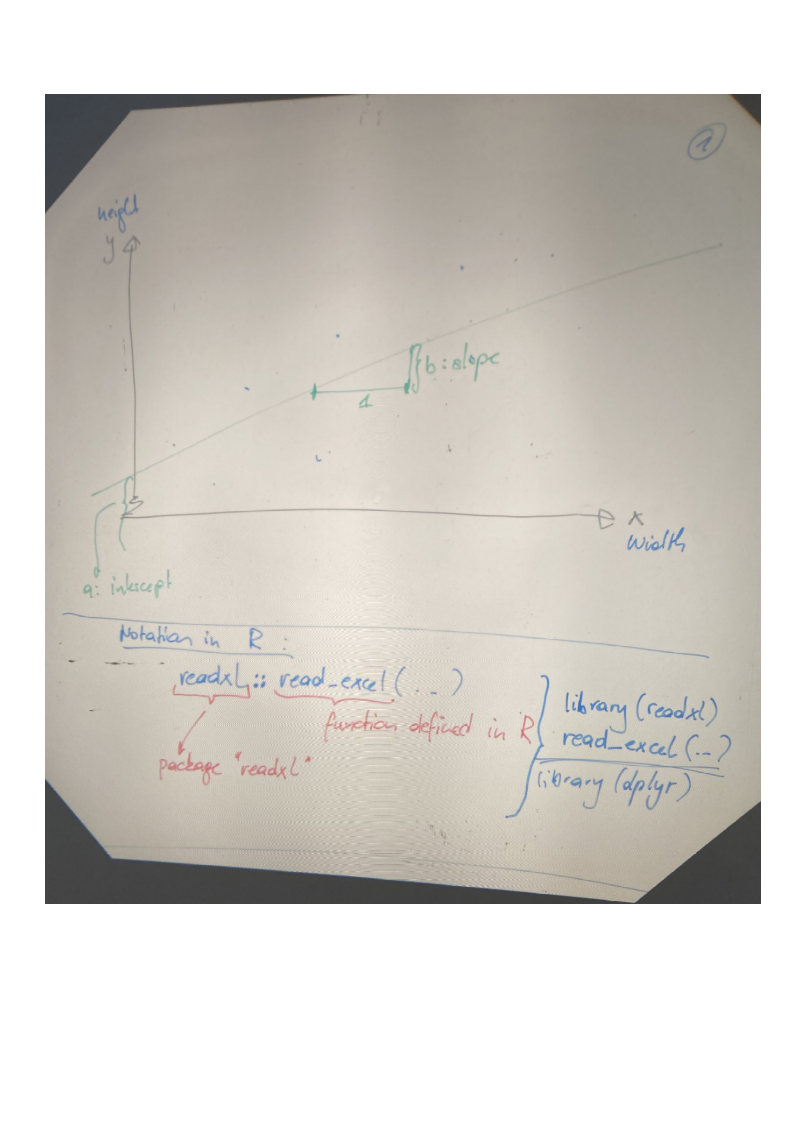 1
height
y
b : slope
1
x
Width
a: intercept
Notation in R :
readxl :: read_excel ( . . )
function defined in R
package "readxl"
library (readxl)
read_excel (...)
library (dplyr)